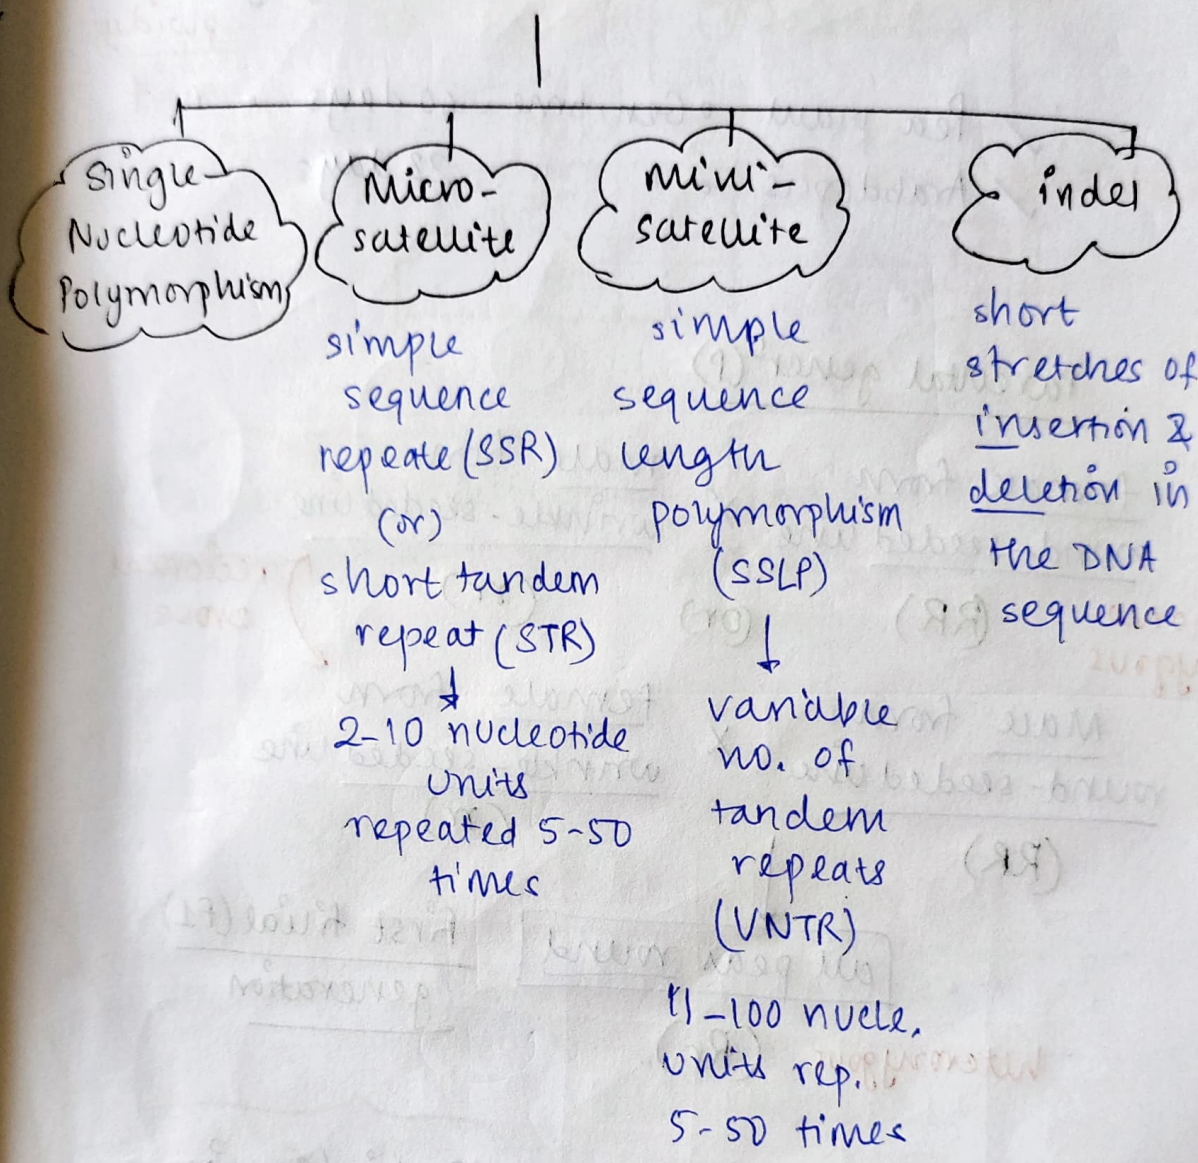 Single
Nucleotide
Polymorphism
Micro-
satellite
mini-
satellite
indel
simple
sequence
repeate (SSR)
(or)
short tandem
repeat (STR)
↓
2-10 nucleotide
units
repeated 5-50
times
simple
sequence
length
polymorphism
(SSLP)
↓
variable
no. of
tandem
repeats
(VNTR)
11-100 nucle.
units rep.
5-50 times
short
stretches of
insertion &
deletion in
the DNA
sequence